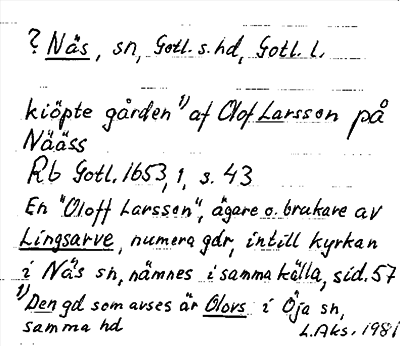 ? Näs, sn, Gotl. s. hd, Gotl. l.
kiöpte gården 1) af Olof Larsson på
Nääss
Rb Gotl. 1653, 1, s. 43
En "Oloff Larsson", ägare o. brukare av
Lingsarve, numera gdr, intill kyrkan
i Näs sn, nämnes i samma källa, sid. 57
1) Den gd som avses är Olovs i Öja sn,
samma hd
L. Aks. 1981